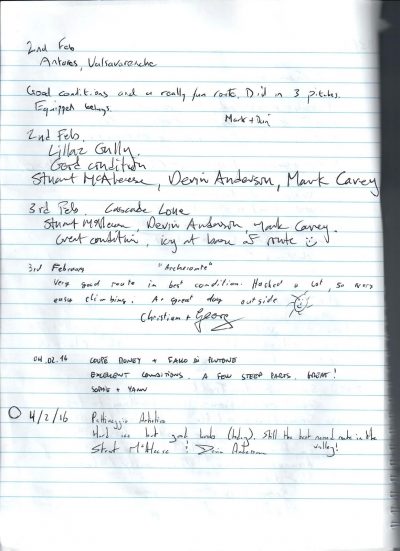 2nd Feb
Antares, Valsavarenche
Good conditions and a really fun route. Did in 3 pitches.
Equipped belays.
Mark +
2nd Feb.
Lillaz Gully.
Good condition
Stuart McAleese, Devin Anderson, Mark Carey
3rd Feb Cascade Lone
Stuart McAleese, Devin Anderson, Mark Carey.
Great condition, icy at base of route
3rd February "Archeronte"
Very good route in best condition. Hooked a lot, so very
easy climbing. A great day outside
Christian + Georg
04.02.16 COUPE DONEY + FALLO DI PLUTONE
EXCELLENT CONDITIONS. A FEW STEEP PARTS. GREAT!
SOPHIE + YANN
4/2/16 Pattinaggio Artistico
Hard ice but good but good (today). Still the best named route in the
valley!
Stuart McAleese & Devin Anderson